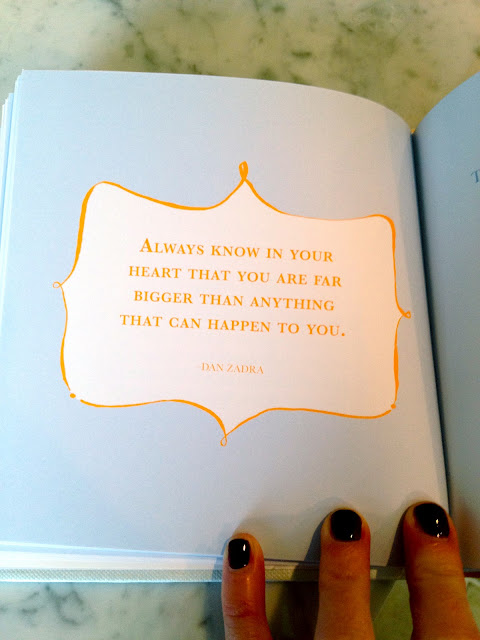 ALWAYS KNOW IN YOUR
HEART THAT YOU ARE FAR
BIGGER THAN ANYTHING
THAT CAN HAPPEN TO YOU.
-DAN ZADRA
T